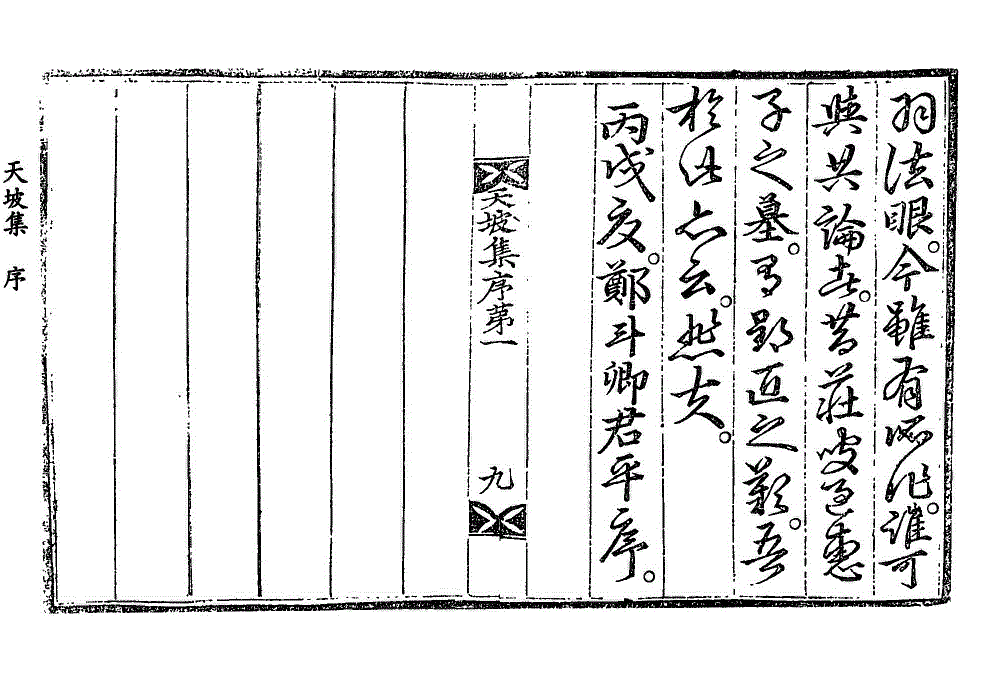 羽法眼。今雖有所作。誰可
與共論哉。昔莊叟過惠
子之墓。有郢匠之歎。吾
於此亦云。悲夫。
丙戌夏。鄭斗卿君平序。
天坡集序第一
九
天坡集 序